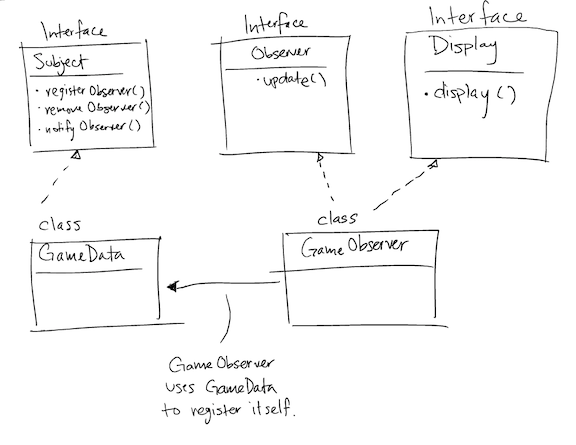 Interface
Subject
· registerObserver()
· removeObserver()
· notifyObserver()
Interface
Observer
· update()
Interface
Display
· display()
class
GameData
class
GameObserver
GameObserver
uses GameData
to register itself.